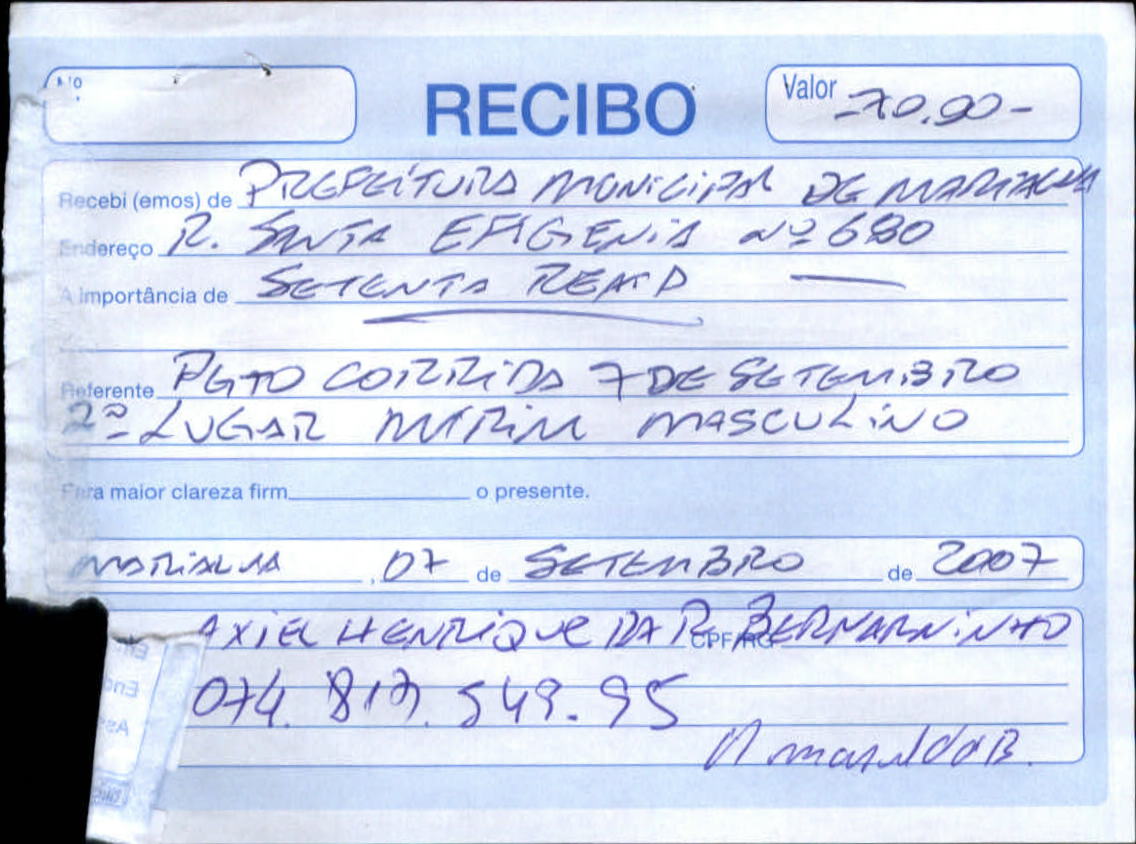 Nº
RECIBO
Valor 70,00-
Recebi (emos) de PREFEITURA MUNICIPAL DE MARIALVA
Endereço R. SANTA EFIGENIA Nº 680
A importância de SETENTA REAIS
Referente PGTO CORRIDA 7 DE SETEMBRO
2º LUGAR MIRIM MASCULINO
Para maior clareza firm o presente.
MARIALVA, 07 de SETEMBRO de 2007
AXIEL HENRIQUE DA R. BERNARDINHO
CPF/RG
074. .549-95